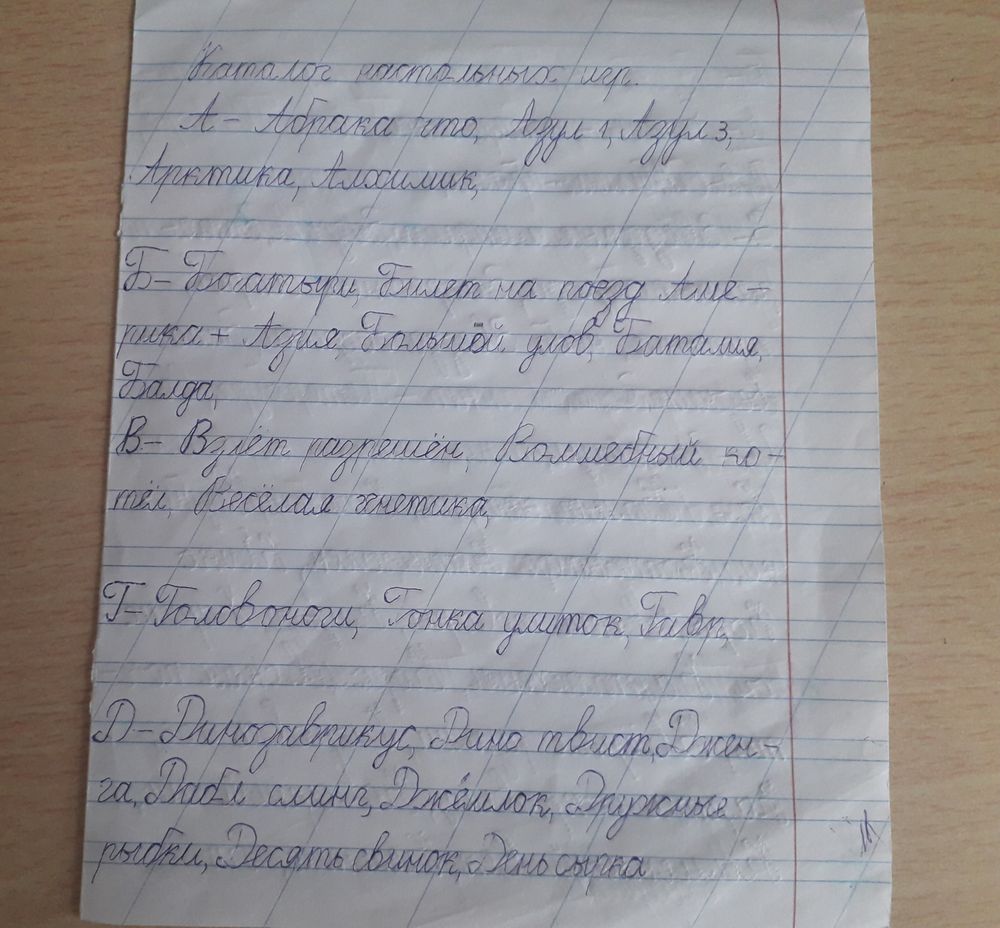 Каталог настольных игр.
А - Абрака что, Азул 1, Азул 3,
Арктика, Алхимик,
Б - Богатыри, Билет на поезд Аме-
рика + Азия, Большой улов, Баталия,
Балда,
В - Взлёт разрешён, Волшебный ко-
тёл, Весёлая
Г - Головоноги, Гонка улиток, Гавр,
Д - Динозаврикус, Дино твист, Джен-
га, Дабл слинг, Дружные
рыбки, Десять свинок, День сырка